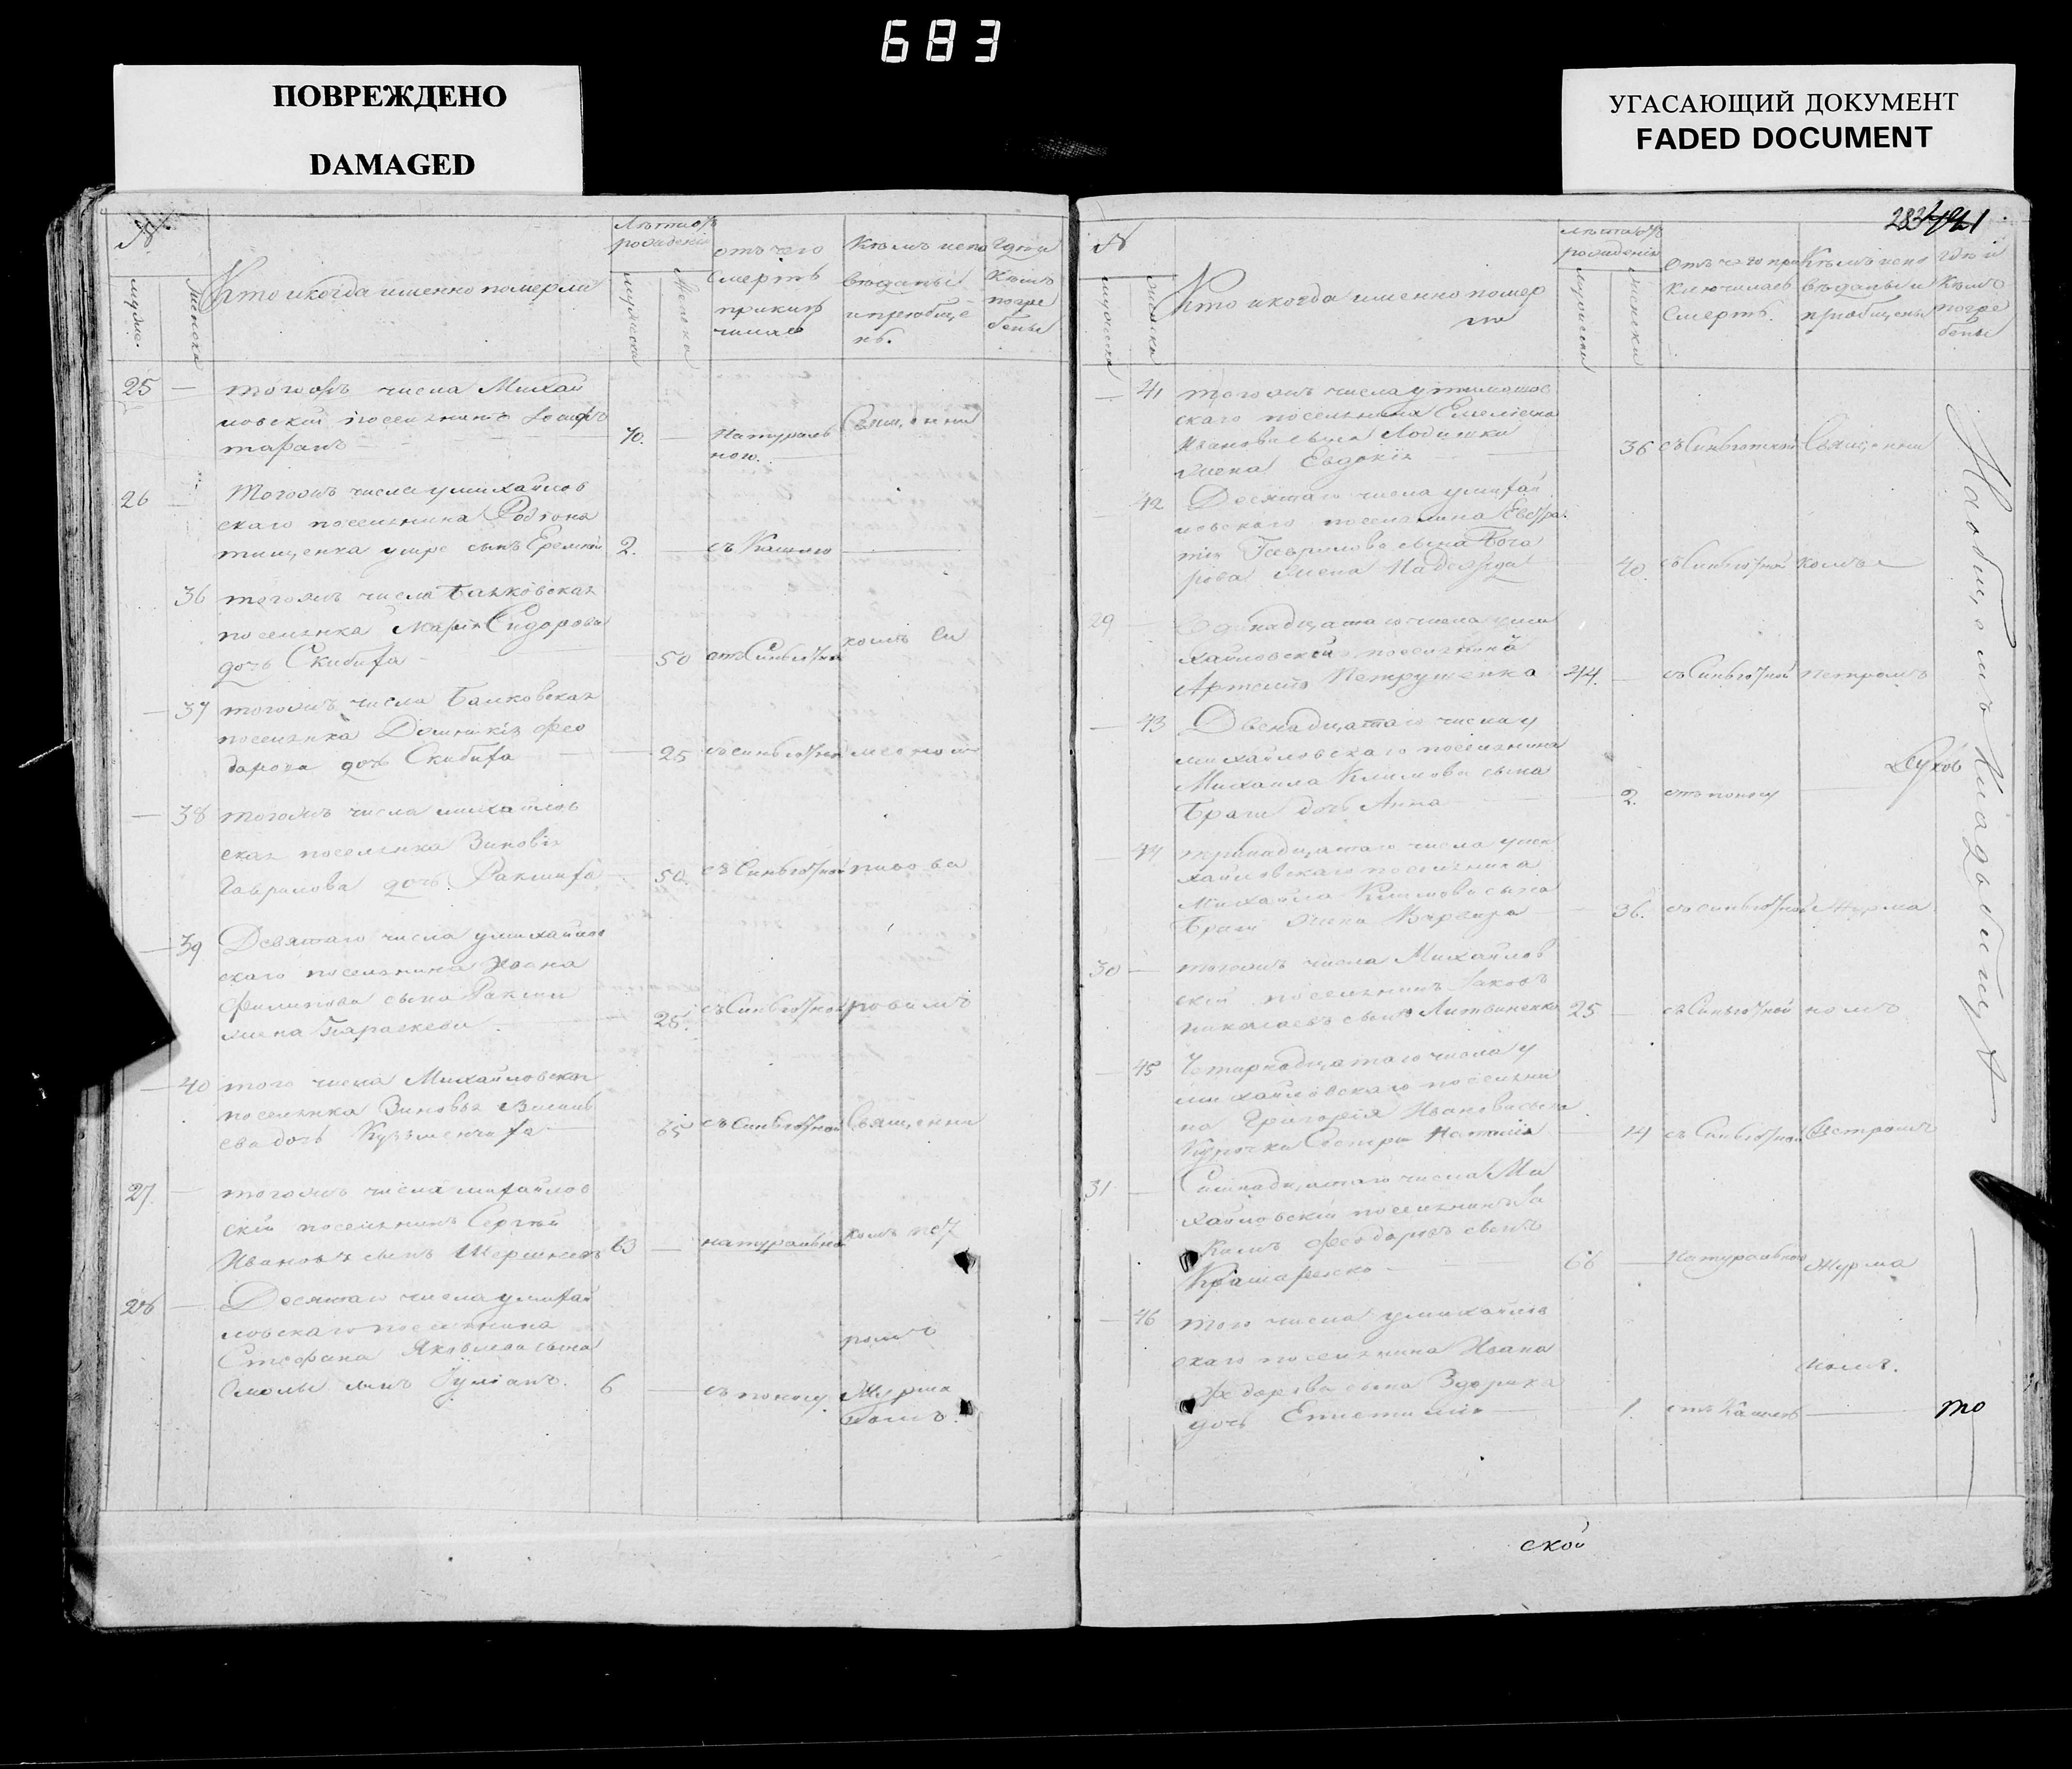 683
ПОВРЕЖДЕНО
DAMAGED
УГАСАЮЩИЙ ДОКУМЕНТ
FADED DOCUMENT
№
мужес.
женска
Кто и когда именно померли
Лѣта отъ рожденія
мужеска
женска
отъ чего
смерть
приклю
чилась
Кѣмъ испо
вѣданы
и пріобще
ны.
гдѣ и
кѣмъ
погре
бены
25 —
тогожъ числа Михай
ловскій поселянинъ Іосифъ
70. — Натураль
ною.
Священни
26 —
Тогожъ числа у михайлов
скаго поселянина Родіона
тищенка умре сынъ Еремѣй 2. съ Кашлю
36 тогожъ числа Балковская
поселянка Марія Сидорова
дочь Скибиха — 50 отъ Синьготной комъ Си
— 37 тогожъ числа Балковская
поселянка Домникія Фео
дорова дочь Скибиха — 25 съ синьготной меоном
— 38 тогожъ числа михайлов
ская поселянка Зиновія
Гаврилова дочь Ракшиха — 50. съ Синьготной
— 39 Девятаго числа у михайлов
скаго поселянина Іоана
Филипова сына Ракши
жена Параскева — 28. съ Синьготной ровымъ
— 40 того числа Михайловская
поселянка Зиновья Васильь
ева дочь Кузьменчиха — 65 съ Синьготной Священни
27. —
тогожъ числа михайлов
скій поселянинъ Сергѣй
Ивановъ сынъ 63 — натуральной комъ Пет
28 —
Десятаго числа у михай
ловскаго поселянина
Стефана Яковлева сына
Смолы сынъ Іуліанъ. 6 — съ поносу
ромъ
Журма
номъ.
283
№
мужеска
женска
Кто и когда именно помер
ли
Лѣта отъ рожденія
мужески
женски
Отъ чего при
ключилась
Смерть.
Кѣмъ испо
вѣданы и
пріобщены
гдѣ и
Кѣмъ
погре
бены
— 41 тогожъ числа у
скаго поселянина Емеліана
Иванова сына
жена Евдокія — 36 съ Синьготной Священни
— 42 Десятаго числа у михай
ловскаго поселянина Евстра
тія Гаврилова сына Боча
рова жена Надежда — 40. съ Синьготной комъ
29 Одинадцатаго числа у ми
хайловской поселянинъ
Артемъ Петрушенка 44. — съ Синьготной петромъ
— 43 Двенадцатаго числа у
михайловскаго поселянина
Михаила Климова сына
Браги дочь Анна — 2. отъ поносу
— 44 тринадцатаго числа у ми
хайловскаго поселянина
Михаила Климова сына
Браги жена Варвара — 36. съ синьготной Журма
30 — тогожъ числа Михайлов
скій поселянинъ Іаковъ
николаевъ сынъ Литвиненко 25 — съ Синьготной номъ
— 45 Четырнадцатаго числа у
михайловскаго поселяни
на Григорія Иванова сына
Курочки Сестра Наталія — 14 съ Синьготной Петромъ
31 — Симнадцатаго числа Ми
хайловскій поселянинъ Іа
кимъ Феодоровъ сынъ
66 — Натуральною Журма
— 46 того числа у михайлов
скаго поселянина Ивана
Федорова сына
дочь Епистимія — 1. отъ Кашлю
номъ.
На общемъ Кладбищѣ
Духов
то
ской